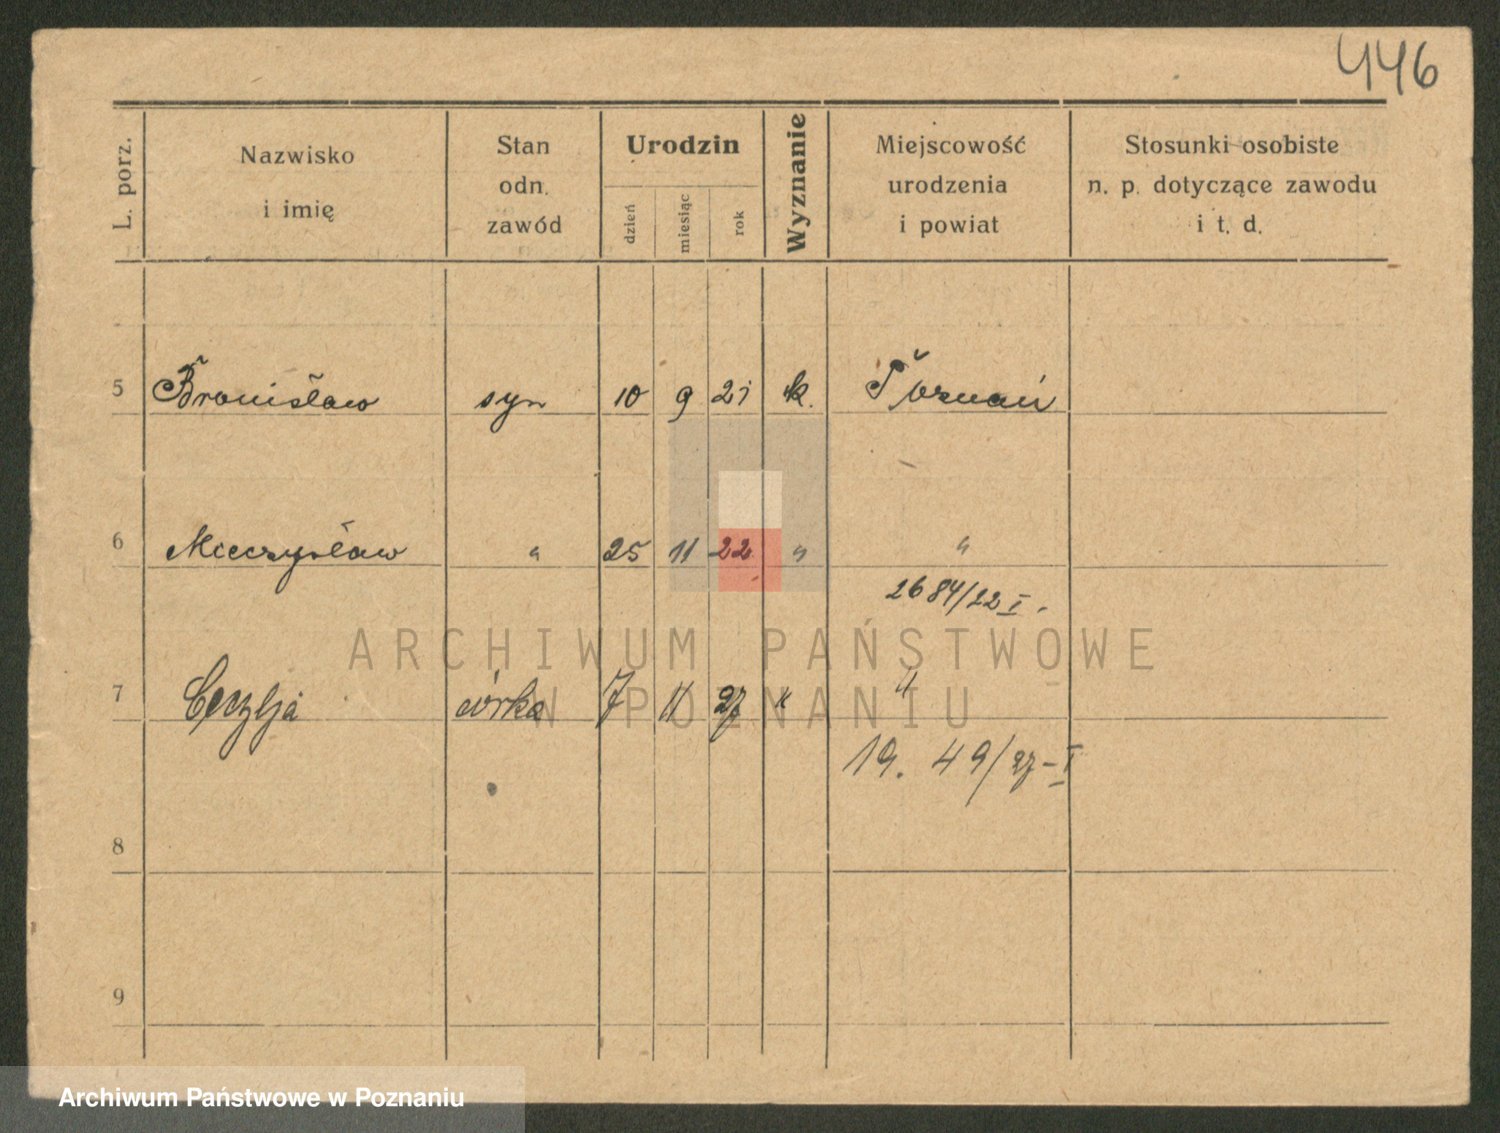 446
L. porz.
Nazwisko
i imię
Stan
odn.
zawód
Urodzin
dzień
miesiąc
rok
Wyznanie
Miejscowość
urodzenia
i powiat
Stosunki osobiste
n. p. dotyczące zawodu
i t. d.
5 Bronisław syn 10 9 21 k. Poznań
6 Mieczysław " 25 11 22 " "
2684/22 I.
7 Cecylja córka 7 11 27 " "
19. 49/27-I
8
9
ARCHIWUM PAŃSTWOWE
W POZNANIU
Archiwum Państwowe w Poznaniu